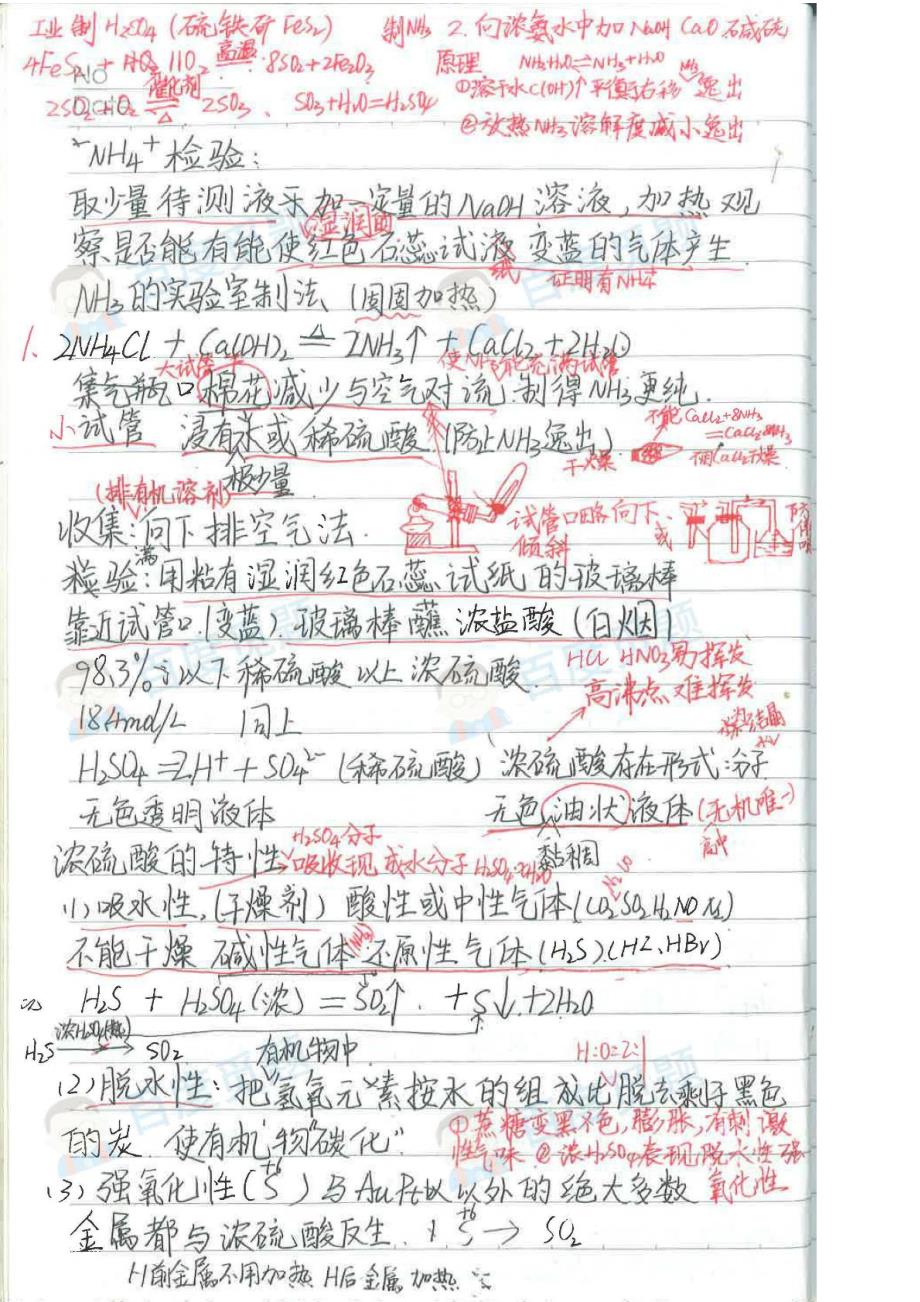 工业制H₂SO₄(硫铁矿FeS₂)
4FeS₂ + 11O₂ 高温 8SO₂+2Fe₂O₃
2SO₂+O₂ 催化剂 △ 2SO₃、SO₃+H₂O=H₂SO₄
制NH₃ 2.向浓氨水中加NaOH CaO 碱石灰
原理 NH₃·H₂O⇌NH₃+H₂O
①溶于水C(OH)↑平衡右移 NH₃逸出
②放热NH₃溶解度减小逸出
NH₄⁺检验:
取少量待测液于加一定量的NaOH溶液,加热观
湿润的
察是否能有能使红色石蕊试液变蓝的气体产生
纸 证明有NH₄⁺
NH₃的实验室制法(固固加热)
1. 2NH₄Cl + Ca(OH)₂ △= 2NH₃↑ + CaCl₂+2H₂O
大试管 使NH₃能充满试管
集气瓶口棉花减少与空气对流.制得NH₃更纯.
不能CaCl₂+8NH₃
=CaCl₂·8NH₃
小试管 浸有水或稀硫酸(防止NH₃逸出)
干燥 不用CaCl₂干燥
极少量
(排有机溶剂)
收集:向下排空气法.
试管口略向下 倾斜 或 防倒吸
满
检验:用粘有湿润红色石蕊试纸的玻璃棒
靠近试管口.(变蓝).玻璃棒蘸浓盐酸(白烟)
HCl HNO₃易挥发
98.3%以下稀硫酸以上浓硫酸.
高沸点难挥发
18.4mol/L 同上
H₂SO₄=2H⁺+SO₄²⁻(稀硫酸) 浓硫酸存在形式:分子
无色透明液体 无色油状液体(无机唯一)
高中
黏稠
H₂SO₄分子
浓硫酸的特性 吸收现成水分子
(1)吸水性,(干燥剂)酸性或中性气体(CO₂ SO₂ H₂ NO N₂)
(NH₃)
不能干燥 碱性气体 还原性气体(H₂S).(HI、HBr)
H₂S + H₂SO₄(浓)=SO₂↑ + S↓+2H₂O
H₂S 浓H₂SO₄ → SO₂ 有机物中 H:O=2:1
(2)脱水性:把氢氧元素按水的组成比脱去剩余黑色
的炭.使有机物"碳化"
①蔗糖变黑色,膨胀,有刺激
性气味 ②浓H₂SO₄表现脱水性强
氧化性
(3)强氧化性(+6 S)与Au Pt以以外的绝大多数
金属都与浓硫酸反生. +6 S→SO₂
H前金属不用加热 H后金属加热